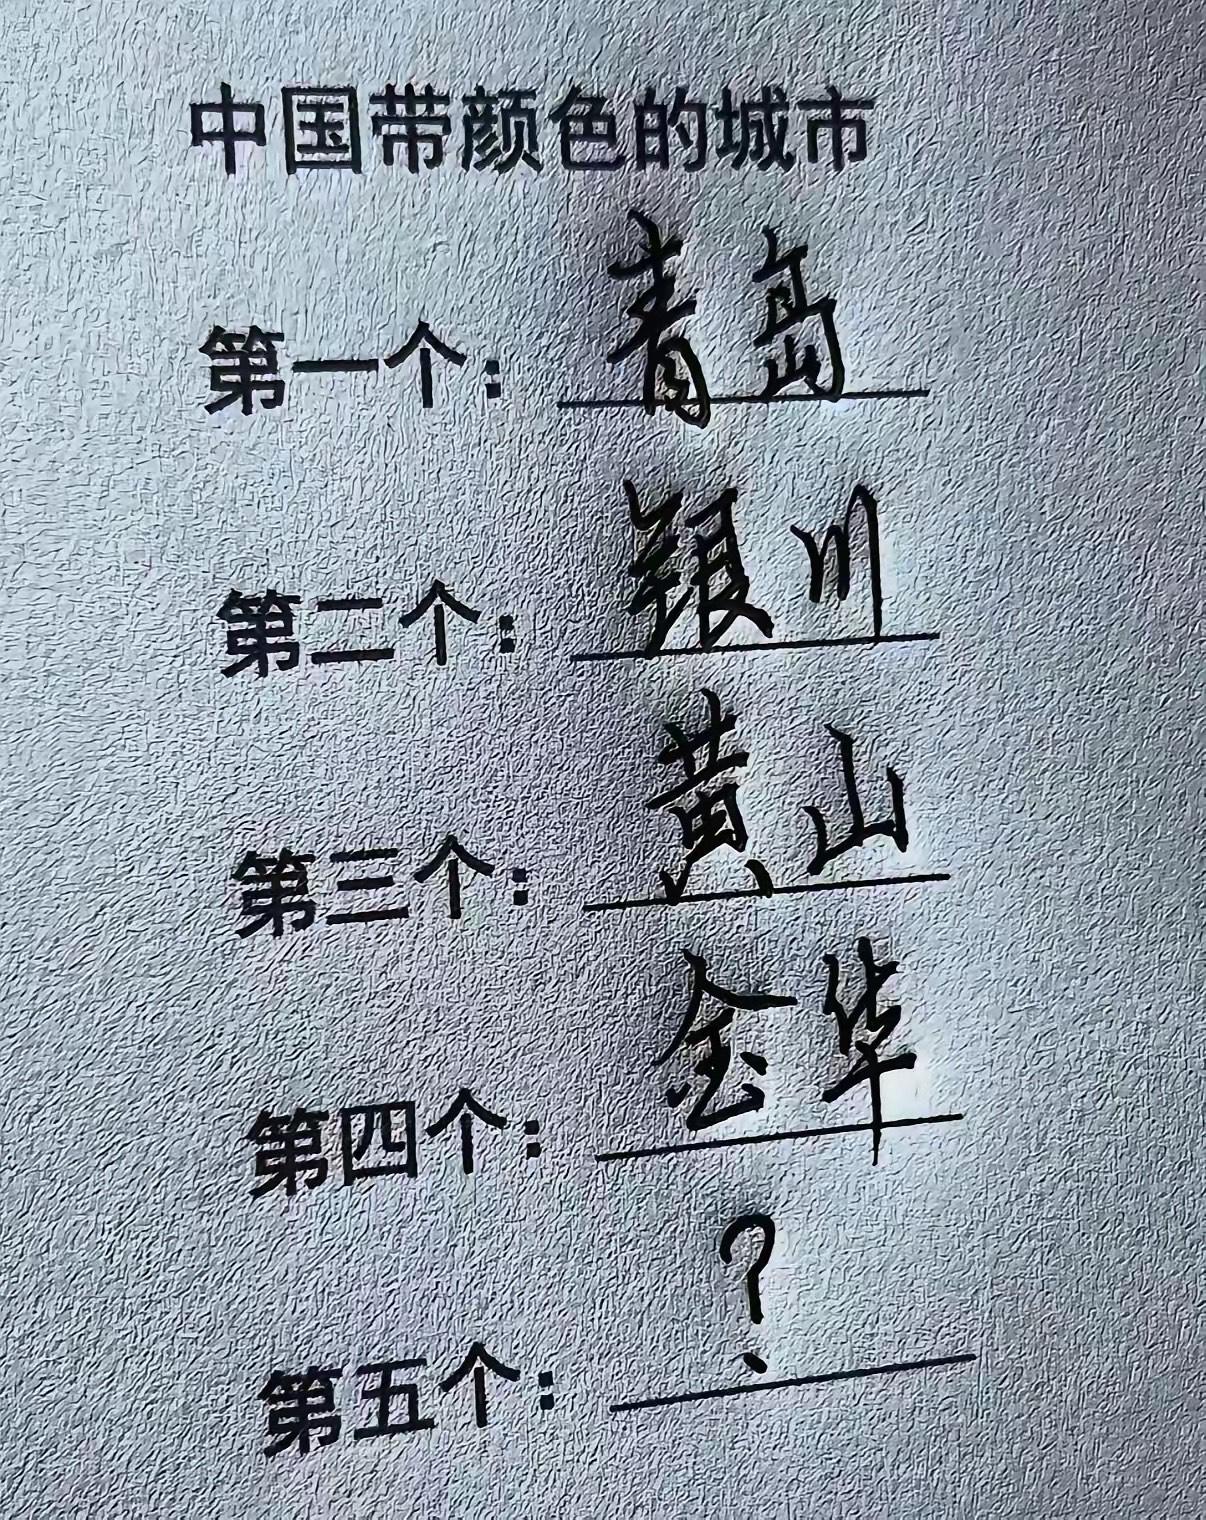 中国带颜色的城市
第一个：青岛
第二个：银川
第三个：黄山
第四个：金华
第五个：？